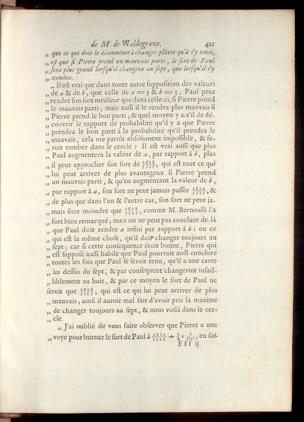 de M. de Waldegrave. 421
„ que ce qui doit le déterminer à changer plûtôt qu'à s'y tenir,
„ est que si Pierre prend un mauvais parti, le sort de Paul
„ sera plus grand lorsqu'il changera au sept, que lorsqu'il s'y
„ tiendra.
„ Il est vrai que dans toute autre supposition des valeurs
„ de a & de b, que celle de a = 3 & b = 5, Paul peut
„ rendre son sort meilleur que dans celle-ci, si Pierre prend
„ le mauvais parti; mais aussi il le rendra plus mauvais si
„ Pierre prend le bon parti; & quel moyen y a-t'il de dé-
„ couvrir le rapport de probabilité qu'il y a que Pierre
„ prendra le bon parti à la probabilité qu'il prendra le
„ mauvais, cela me paroît absolument impossible, & se-
„ roit tomber dans le cercle? Il est vrai aussi que plus
„ Paul augmentera la valeur de a, par rapport à b, plus
„ il peut approcher son sort de qui est tout ce qui
„ lui peut arriver de plus avantageux si Pierre prend
„ un mauvais parti, & qu'en augmentant la valeur de b,
„ par rapport à a, son sort ne peut jamais passer &
„ de plus que dans l'un & l'autre cas, son sort ne peut ja-
„ mais être moindre que comme M. Bernoulli l'a
„ fort bien remarqué; mais on ne peut pas conclure de là
„ que Paul doit rendre a infini par rapport à b; ou ce
„ qui est la même chose, qu'il doit changer toujours au
„ sept; car si cette consequence étoit bonne, Pierre qui
„ est supposé aussi habile que Paul pourroit aussi conclure
„ toutes les fois que Paul se seroit tenu, qu'il a une carte
„ au dessus du sept, & par consequent changeroit infail-
„ liblement au huit, & par ce moyen le sort de Paul ne
„ seroit que qui est ce qui lui peut arriver de plus
„ mauvais; ainsi il auroit mal fait d'avoir pris la maxime
„ de changer toujours au sept, & nous voilà dans le cer-
„ cle.
„ J'ai oublié de vous faire observer que Pierre a une
„ voye pour borner le sort de Paul à en fai-
F f f ij